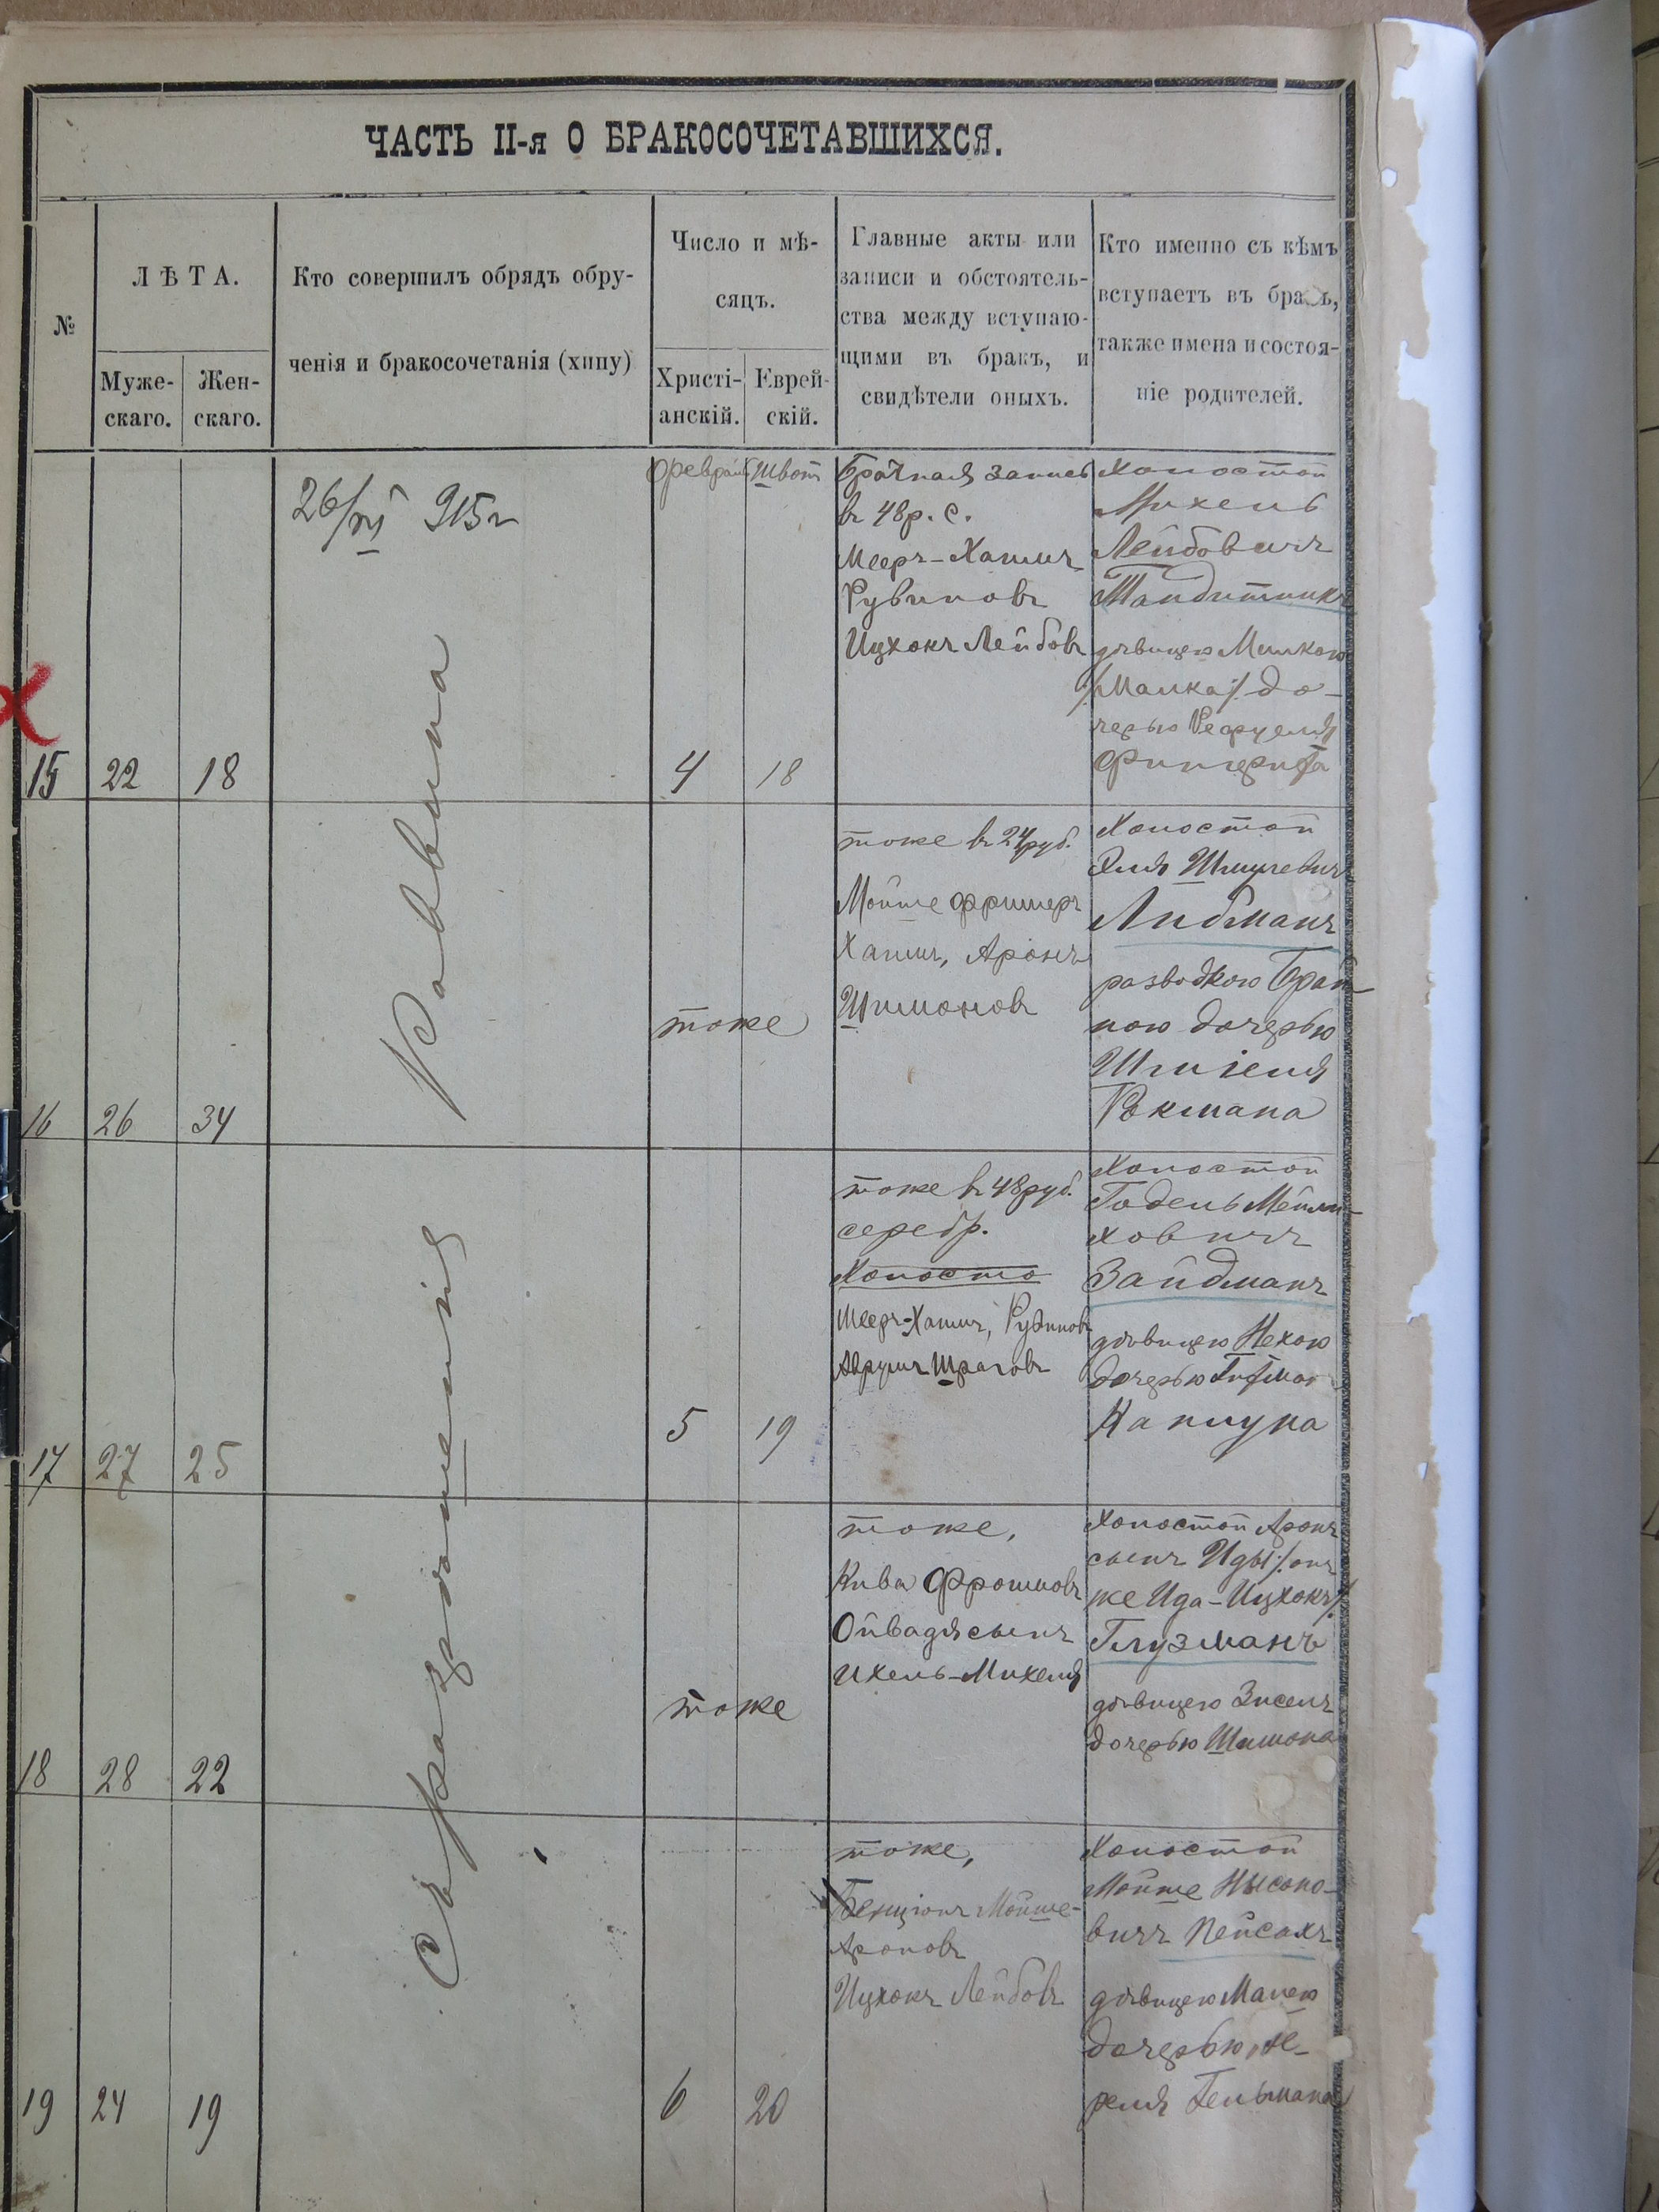 ЧАСТЬ II-я О БРАКОСОЧЕТАВШИХСЯ.
№
ЛѢТА.
Муже-
скаго.
Жен-
скаго.
Кто совершилъ обрядъ обру-
ченія и бракосочетанія (хипу)
Число и мѣ-
сяцъ.
Христі-
анскій.
Еврей-
скій.
Главные акты или
записи и обстоятель-
ства между вступаю-
щими въ бракъ, и
свидѣтели оныхъ.
Кто именно съ кѣмъ
вступаетъ въ бракъ,
также имена и состоя-
ніе родителей.
915 г
Раввина
15
22
18
Февраль
4
Швот
18
Брачная запись
въ 48 р. с.
Мееръ-Хаимъ
Рувиновъ
Ицхокъ Лейбовъ
Холостой
Михель
Лейбовичъ
Тандитникъ
дѣвицею Милкою
/:Малка:/ до-
черью Рефуеля
16
26
34
тоже
тоже въ 24 руб.
Мойше Фришеръ
Хаимъ, Аронъ
Шимоновъ
Холостой
Эля Шмулевичъ
Либманъ
разводкою Бран-
ною дочерью
Шміеля
Рокмана
17
27
25
5
19
тоже въ 48 руб.
серебр.
Холосто
Мееръ-Хаимъ, Рувиновъ
Аврумъ Шраговъ
Холостой
Годель Мейли-
ховичъ
Зайдманъ
дѣвицею Нехою
дочерью
Каплуна
18
28
22
тоже
тоже,
Кива Фроимовъ
Ойвадя сынъ
Ихель-Михеля
Холостой Аронъ
сынъ Иды /:онъ
же Ида-Ицхокъ:/
Глузманъ
дѣвицею Зиселъ
дочерью Шимона
19
24
19
6
20
тоже,
Бенціонъ Мойше-
Ароновъ
Ицхокъ Лейбовъ
Холостой
Мойше Нысоно-
вичъ Пейсахъ
дѣвицею Манею
дочерью
Гельмана